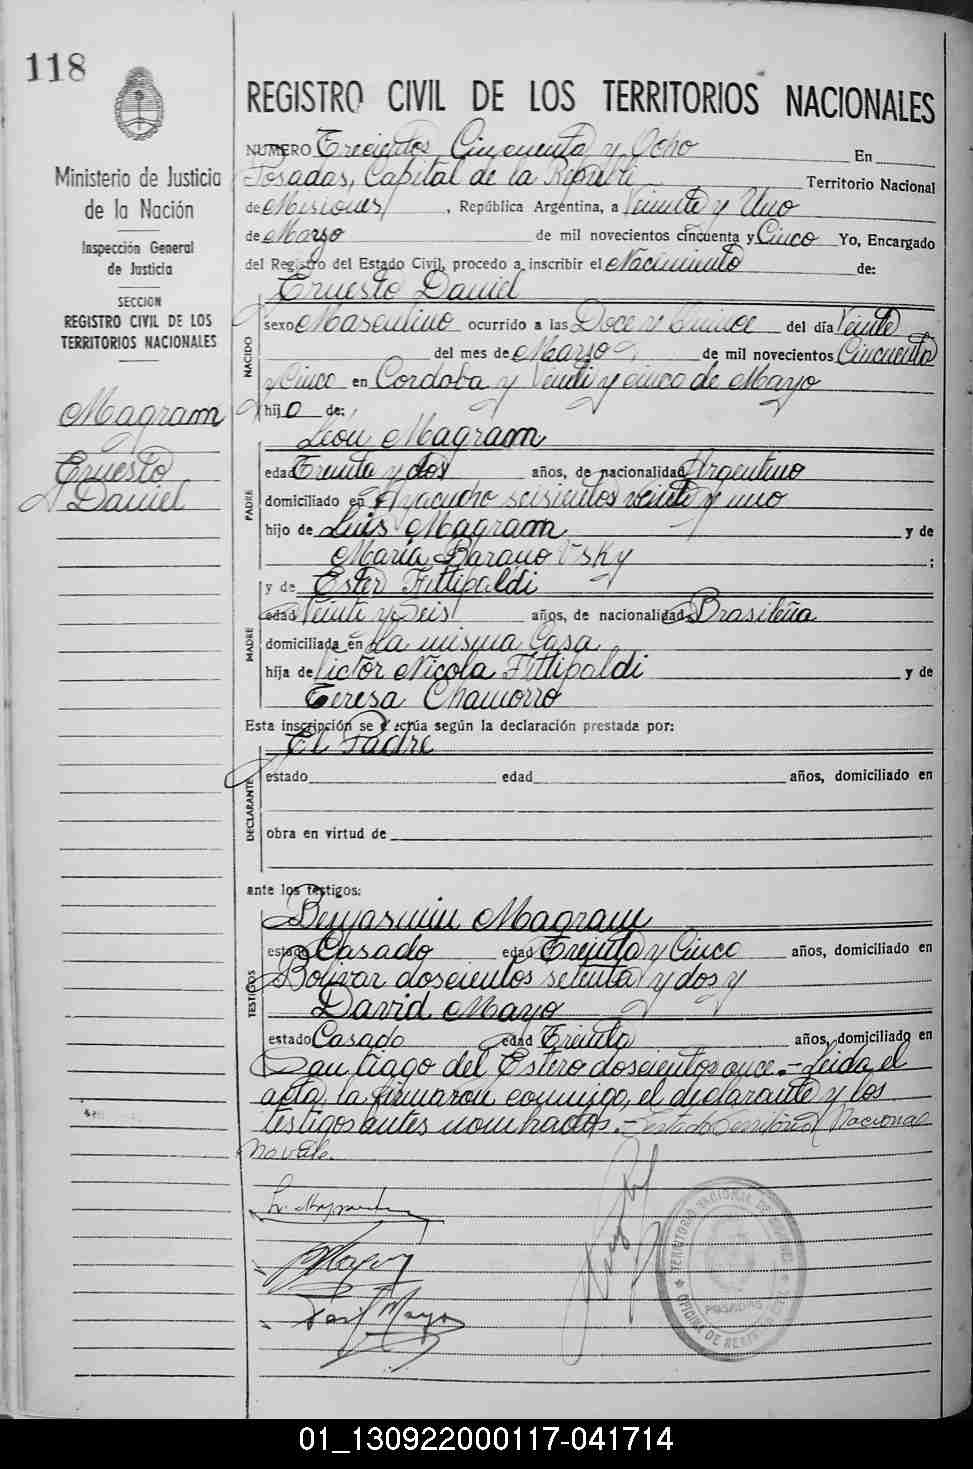 118
Ministerio de Justicia
de la Nación
Inspección General
de Justicia
SECCION
REGISTRO CIVIL DE LOS
TERRITORIOS NACIONALES
Magram
Ernesto
Daniel
REGISTRO CIVIL DE LOS TERRITORIOS NACIONALES
NUMERO Trecientos Cincuenta y Ocho En
Posadas, Capital de la Territorio Nacional
de Misiones, República Argentina, a Veinte y Uno
de Marzo de mil novecientos cincuenta y Cinco Yo, Encargado
del Registro del Estado Civil, procedo a inscribir el Nacimiento de:
Ernesto Daniel
NACIDO
sexo Masculino ocurrido a las Doce y Quince del día Veinte
del mes de Marzo de mil novecientos Cincuenta
y Cinco en Cordoba y Veinti y cinco de Mayo
hijo de:
Leon Magram
PADRE
edad Treinta y dos años, de nacionalidad Argentino
domiciliado en Ayacucho seisientos veinte y uno
hijo de Luis Magram y de
Maria Barano Vsky ;
y de Ester Fittipaldi
MADRE
edad Veinte y Seis años, de nacionalidad Brasileña
domiciliada en La misma Casa
hija de Victor Nicola Fittipaldi y de
Teresa Chamorro
Esta inscripción se efectúa según la declaración prestada por:
El Padre
DECLARANTE
estado edad años, domiciliado en
obra en virtud de
ante los testigos:
Benjasmin Magram
TESTIGOS
estado Casado edad Treinta y Cinco años, domiciliado en
Bolivar doscientos setenta y dos y
David Mayo
estado Casado edad Treinta años, domiciliado en
Santiago del Estero doscientos once.- Leida el
acta, la firmaron conmigo, el declarante y los
testigos antes nombrados.- Estado Territorio Nacional
no vale.
TERRITORIO NACIONAL DE MISIONES
POSADAS
OFICINA DE REGISTRO CIVIL
01_130922000117-041714